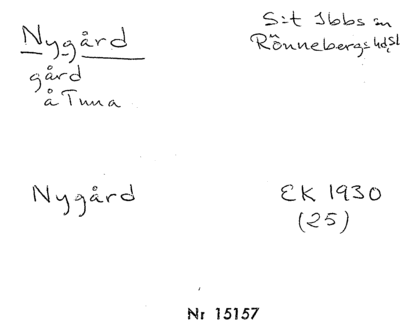 Nygård
gård
å Tuna
S:t Ibbs sn
Rönnebergs hd, Sk
Nygård
EK 1930
(25)
Nr 15157